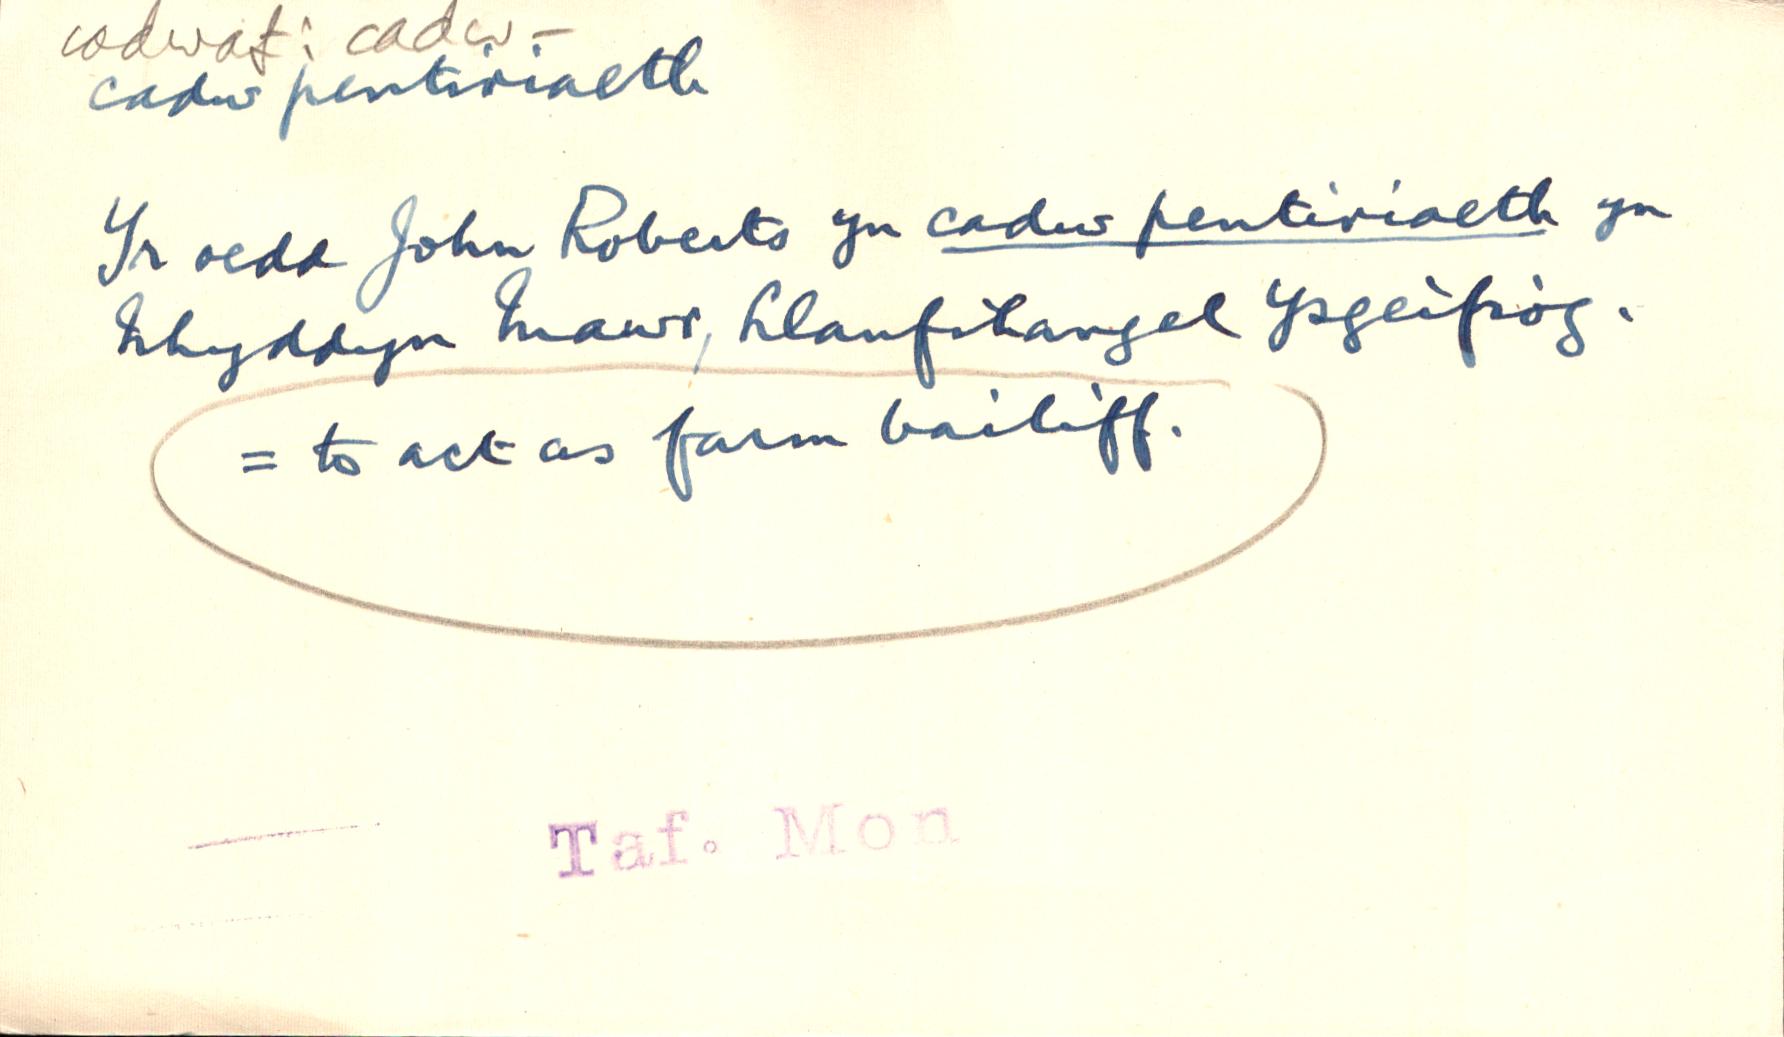 cadwaf: cadw –
cadw pentiriaeth
Yr oedd John Roberts yn cadw pentiriaeth yn
Nhyddyn Mawr, Llanfihangel Ysgeifiog.
= to act as farm bailiff.
Taf. Mon